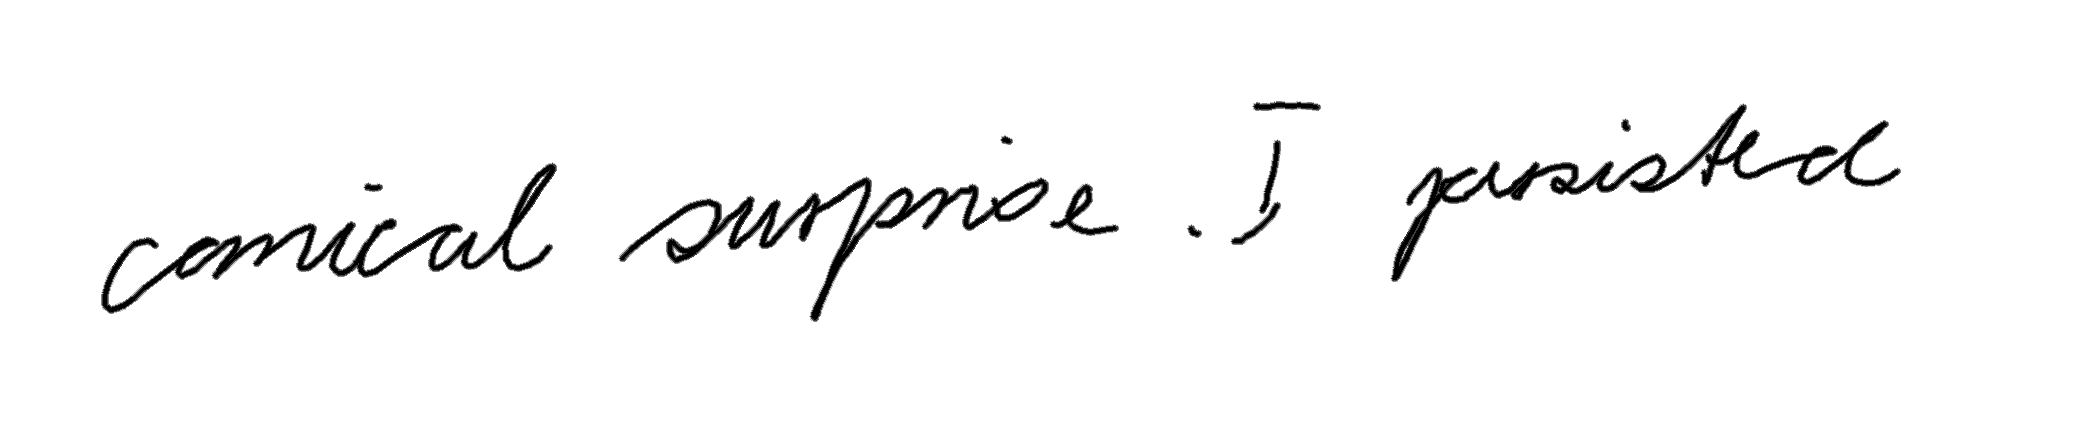 comical surprise. I persisted